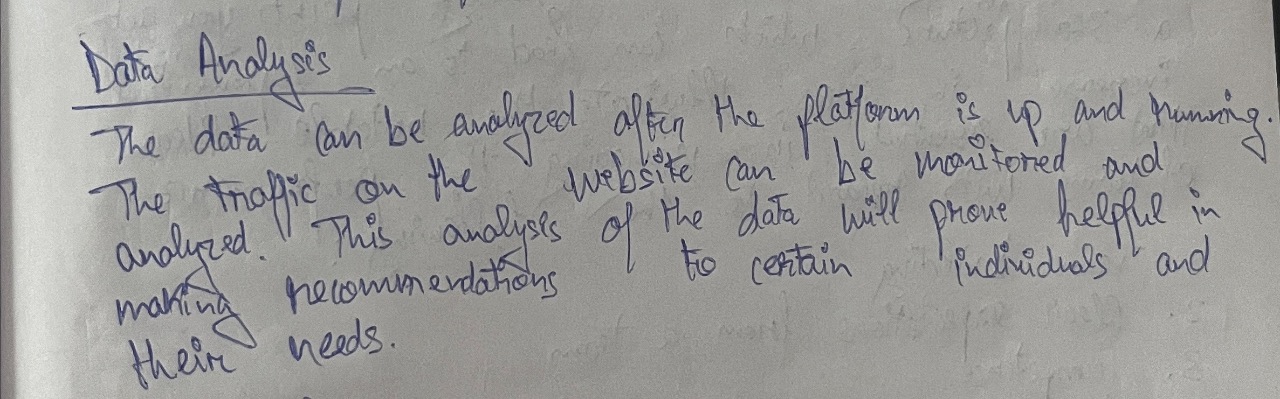 Data Analysis
The data can be analyzed after the platform is up and running.
The traffic on the website can be monitored and
analyzed. This analysis of the data will prove helpful in
making recommendations to certain individuals and
their needs.